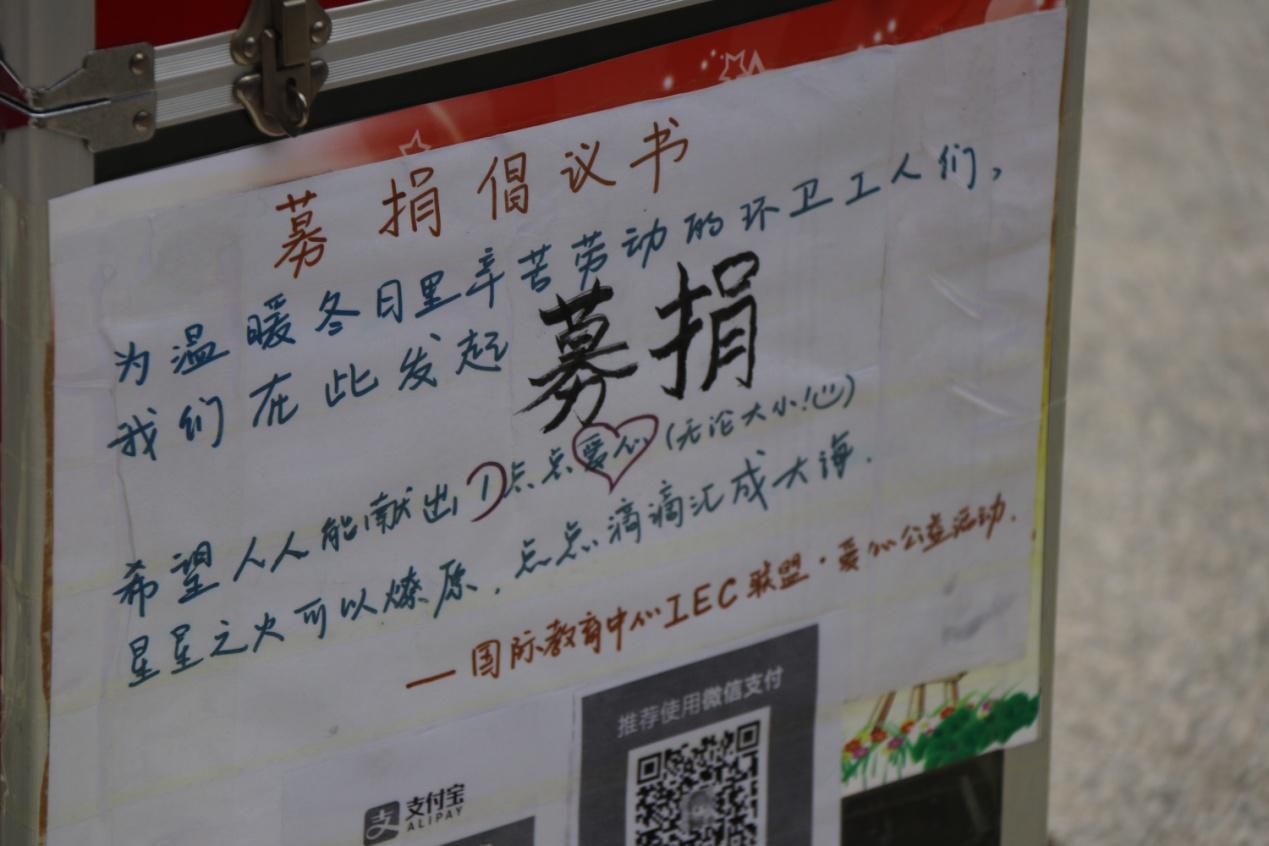 募捐倡议书
为温暖冬日里辛苦劳动的环卫工人们,
我们在此发起募捐
希望人人能献出1点点爱心(无论大小!)
星星之火可以燎原.点点滴滴汇成大海.
—国际教育中心IEC联盟·爱心公益活动.
推荐使用微信支付
支付宝
ALIPAY